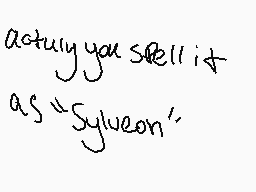 actuly you spell it
as "Sylveon"